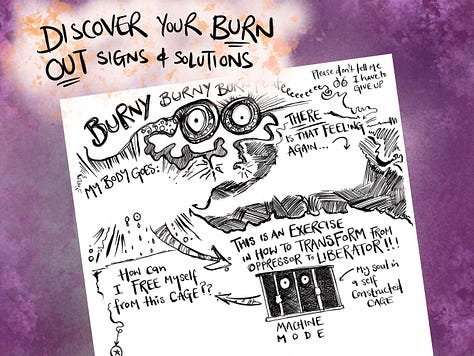 DISCOVER YOUR BURN
OUT SIGNS & SOLUTIONS
BURNY BURNY
Please don't tell me
I have to
GIVE UP
THERE
IS THAT FEELING
AGAIN...
MY BODY GOES:
THIS IS AN EXERCISE
IN HOW TO TRANSFORM FROM
OPPRESSOR TO LIBERATOR!!!
How can
I FREE MYSELF
from this CAGE??
My soul in
a self
constructed
CAGE
MACHINE
MODE